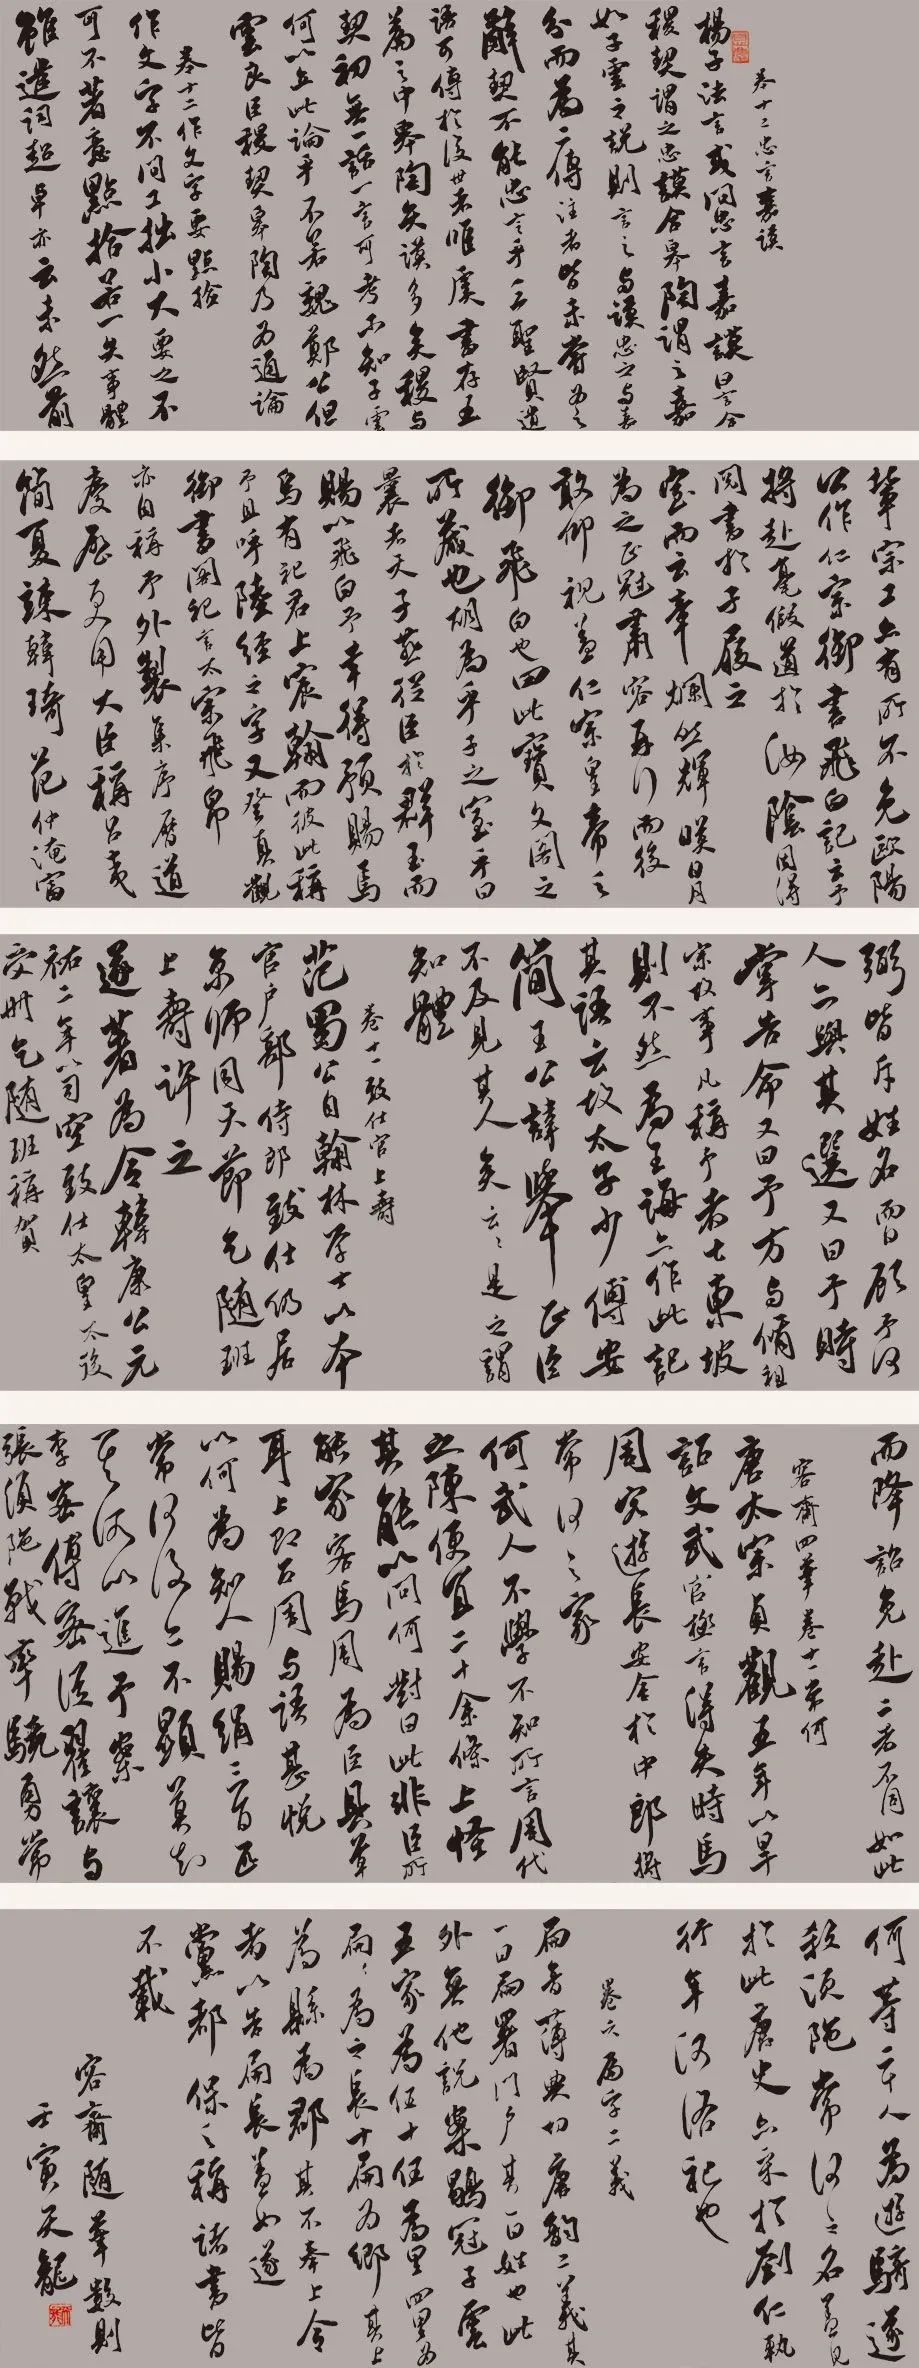 卷十二忠言嘉謨
楊子法言或問忠言嘉謨曰言合
稷契謂之忠謨合皋陶謂之嘉
如子雲之說則言之与謨忠之与嘉
分而為二傳注者皆未嘗為之
辭契不能忠言乎三聖賢遺
語可傳於後世者唯虞書存五
篇之中皋陶矢謨多矣稷与
契初無一話一言可考不知子雲
何以立此論乎不若魏鄭公但
云良臣稷契皋陶乃為通論
卷十二作文字要點檢
作文字不問工拙小大要之不
可不著意點檢若一失事體
雖遣詞超卓亦云未然前
輩宗工亦有所不免歐陽
公作仁宗御書飛白記云予
將赴亳假道於汝陰因得
閱書於子履之
室而云章爛然輝暎日月
為之正冠肅容再拜而後
敢仰視蓋仁宗皇帝之
御飛白也曰此寶文閣之
所藏也胡為乎子之室乎曰
曩者天子燕從臣於群玉而
賜以飛白予幸得預賜焉
烏有記君上宸翰而彼此稱
予且呼陸經之字又登真觀
御書閣記言太宗飛帛
亦自稱予外製集序曆道
慶曆更用大臣稱呂夷
簡夏竦韓琦范仲淹富
弼皆斥姓名而曰顧予何
人亦與其選又曰予時
掌告命又曰予方与脩祖
宗故事凡稱予者七東坡
則不然為王誨亦作此記
其語云故太子少傅安
簡王公諱舉正臣
不及見其人矣云云是之謂
知體
卷十一致仕官上壽
范蜀公自翰林學士以本
官戶部侍郎致仕仍居
京師同天節乞随班
上壽許之
遂著為令韓康公元
祐二年以司空致仕太皇太後
受冊乞随班稱賀
而降詔免赴二者不同如此
容齋四筆卷十一常何
唐太宗貞觀五年以旱
詔文武官極言得失時馬
周客遊長安舍於中郎將
常何之家
何武人不學不知所言周代
之陳便宜二十余條上怪
其能以問何對曰此非臣所
能家客馬周為臣具草
耳上即召周与語甚悅
以何為知人賜絹三百匹
常何後亦不顯莫知
其所以進予案
李密傳密從翟讓与
張須陁戰率驍勇常
何等二十人為遊騎遂
殺須陁常何之名蓋見
於此唐史亦采於劉仁軌
行年河洛記也
卷六扁字二義
扁音薄典切唐韻二義其
一曰扁署門戶其一曰姓也此
外無他說案鶡冠子云
五家為伍十伍為里四里為
扁扁為之長十扁為鄉其上
為縣為郡其不奉上令
者以告扁長蓋如遂
黨都保之稱諸書皆
不載
容齋随筆數則
壬寅天龍